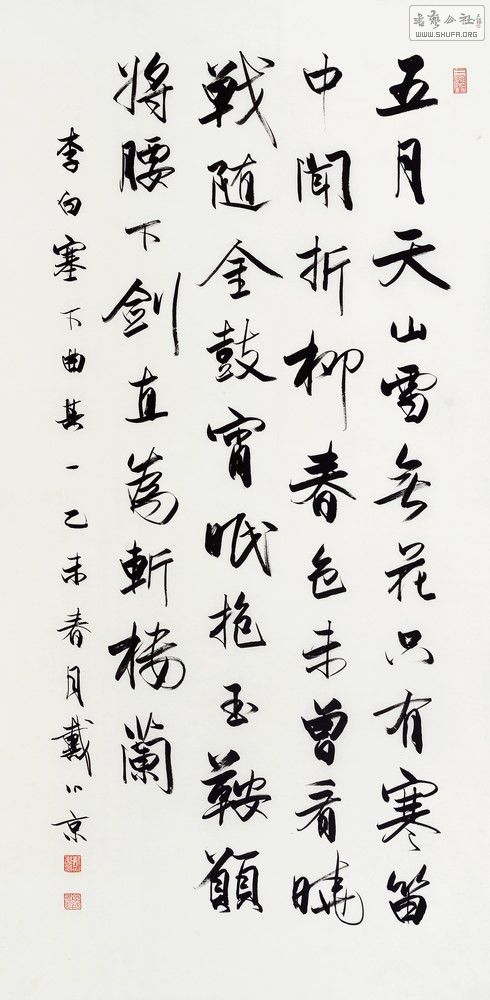 五月天山雪無花只有寒笛
中聞折柳春色未曾看曉
戰随金鼓宵眠抱玉鞍願
將腰下劍直為斬樓蘭
李白塞下曲其一乙未春月戴小京
書藝公社
WWW.SHUFA.ORG